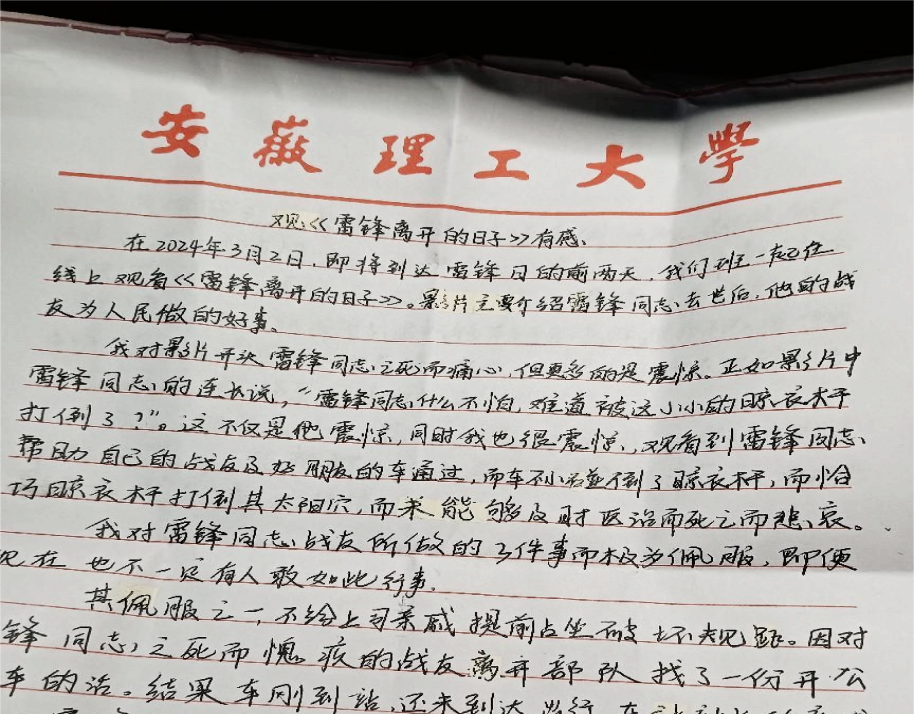 安徽理工大學
观《雷锋离开的日子》有感、
在2024年3月2日,即将到达雷锋日的前两天,我们班一起在
线上观看《雷锋离开的日子》。影片主要介绍雷锋同志去世后,他的战
友为人民做的好事、
我对影片开头雷锋同志之死而痛心,但更多的是震惊。正如影片中
雷锋同志的连长说,“雷锋同志什么不怕,难道被这小小的晾衣杆
打倒了?”。这不仅是他震惊,同时我也很震惊、观看到雷锋同志
帮助自己的战友及好朋友的车通过,而车不小心碰倒了晾衣杆,而恰
巧晾衣杆打倒其太阳穴,而未能够及时医治而死之而悲哀。
我对雷锋同志战友所做的3件事而极为佩服,即便
现在也不一定有人敢如此行事.
其佩服之一,不给上司亲戚提前占坐破坏规距。因对
锋同志之死而愧疚的战友离开部队找了一份开公
车的活。结果车刚到站,还未到达